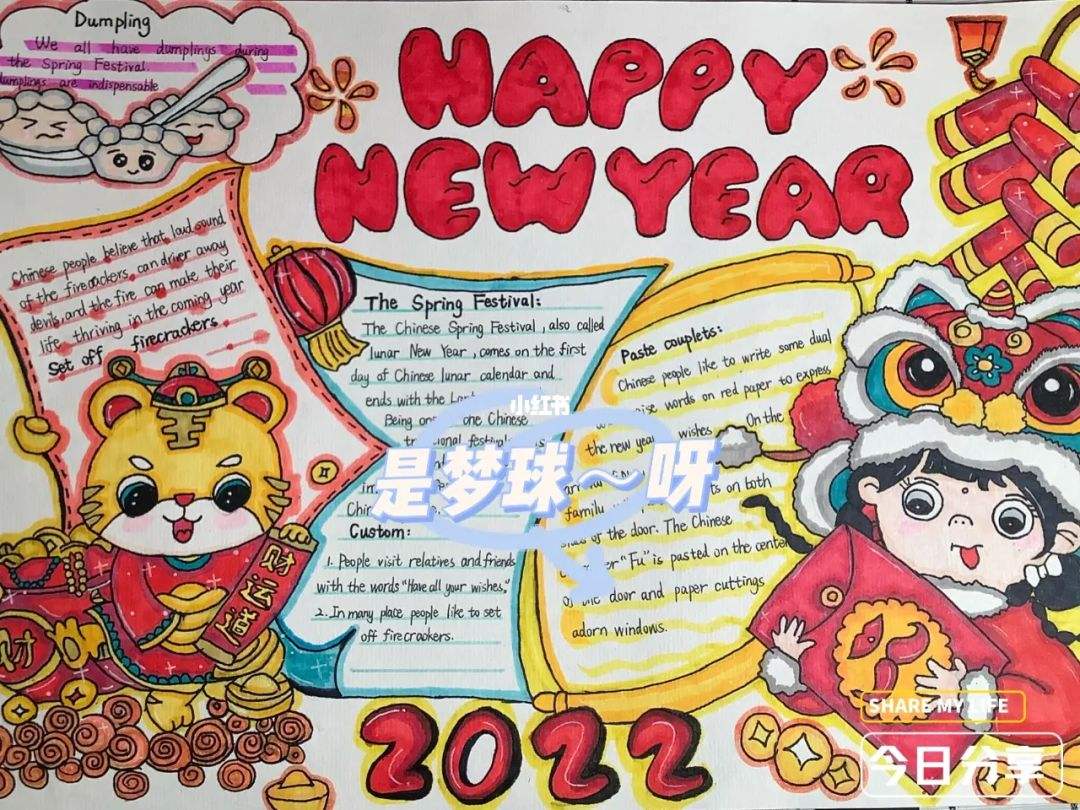 Dumpling
We all have dumplings during
the Spring Festival.
dumplings are indispensable
HAPPY
NEW YEAR
Chinese people believe that loud sound
of the firecrackers can driver away
devils and the fire can make their
life thriving in the coming year
Set off firecrackers.
The Spring Festival:
The Chinese Spring Festival, also called
lunar New Year, comes on the first
day of Chinese lunar calendar and
ends with the
Being one Chinese
Custom:
1. People visit relatives and friends
with the words "Have all your wishes."
2. In many place people like to set
off firecrackers.
Paste couplets:
Chinese people like to write some dual
words on red paper to express
the new year wishes. On the
family on both
of the door. The Chinese
"Fu" is pasted on the center
of the door and paper cuttings
adorn windows.
小红书
是梦球~呀
财运道
财
2022
SHARE MY LIFE
今日分享